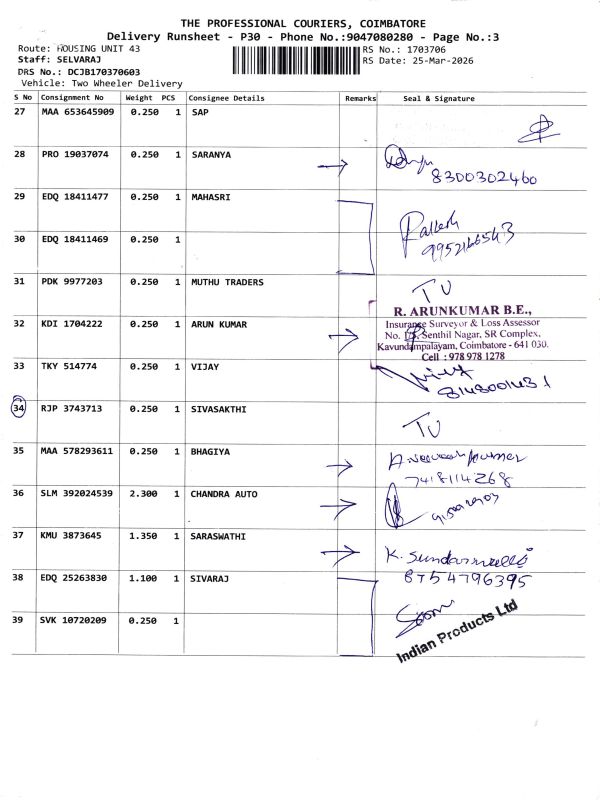 THE PROFESSIONAL COURIERS, COIMBATORE
Delivery Runsheet - P30 - Phone No.:9047080280 - Page No.:3
Route: HOUSING UNIT 43
RS No.: 1703706
Staff: SELVARAJ
RS Date: 25-Mar-2026
DRS No.: DCJB170370603
Vehicle: Two Wheeler Delivery
S No Consignment No Weight PCS Consignee Details Remarks Seal & Signature
27 MAA 653645909 0.250 1 SAP
28 PRO 19037074 0.250 1 SARANYA
8300302460
29 EDQ 18411477 0.250 1 MAHASRI
30 EDQ 18411469 0.250 1
31 PDK 9977203 0.250 1 MUTHU TRADERS
R. ARUNKUMAR B.E.,
32 KDI 1704222 0.250 1 ARUN KUMAR Insurance Surveyor & Loss Assessor
Senthil Nagar, SR Complex,
Kavundampalayam, Coimbatore - 641 030.
Cell : 978 978 1278
33 TKY 514774 0.250 1 VIJAY
34 RJP 3743713 0.250 1 SIVASAKTHI
35 MAA 578293611 0.250 1 BHAGIYA
7418114268
36 SLM 392024539 2.300 1 CHANDRA AUTO
37 KMU 3873645 1.350 1 SARASWATHI
8754796395
38 EDQ 25263830 1.100 1 SIVARAJ
39 SVK 10720209 0.250 1
Indian Products Ltd